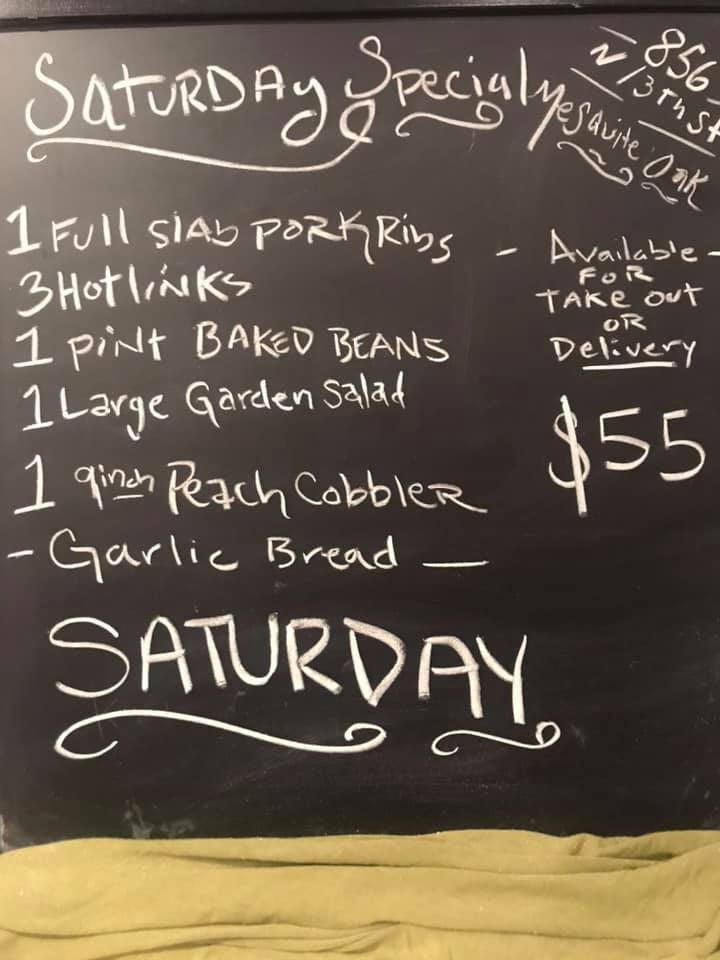 SATURDAY Special
856
N 13th St
Mesquite Oak
1 Full Slab PORK Ribs
3 Hotlinks
1 pint BAKED BEANS
1 Large Garden Salad
1 9inch Peach CobbleR
- Garlic Bread —
- Available -
FOR
TAKE OUT
OR
Delivery
$55
SATURDAY